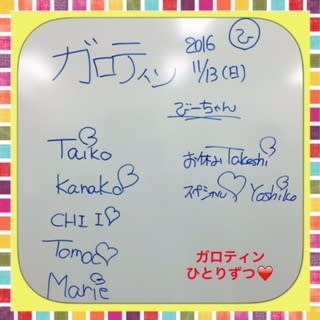 ガロティン
2016 ひ
11/13(日)
びーちゃん
Taiko
Kanako
CHII
Tomoc
Marie
お休み Takeshi
スペシャル Yoshiko
ガロティン
ひとりずつ❤️